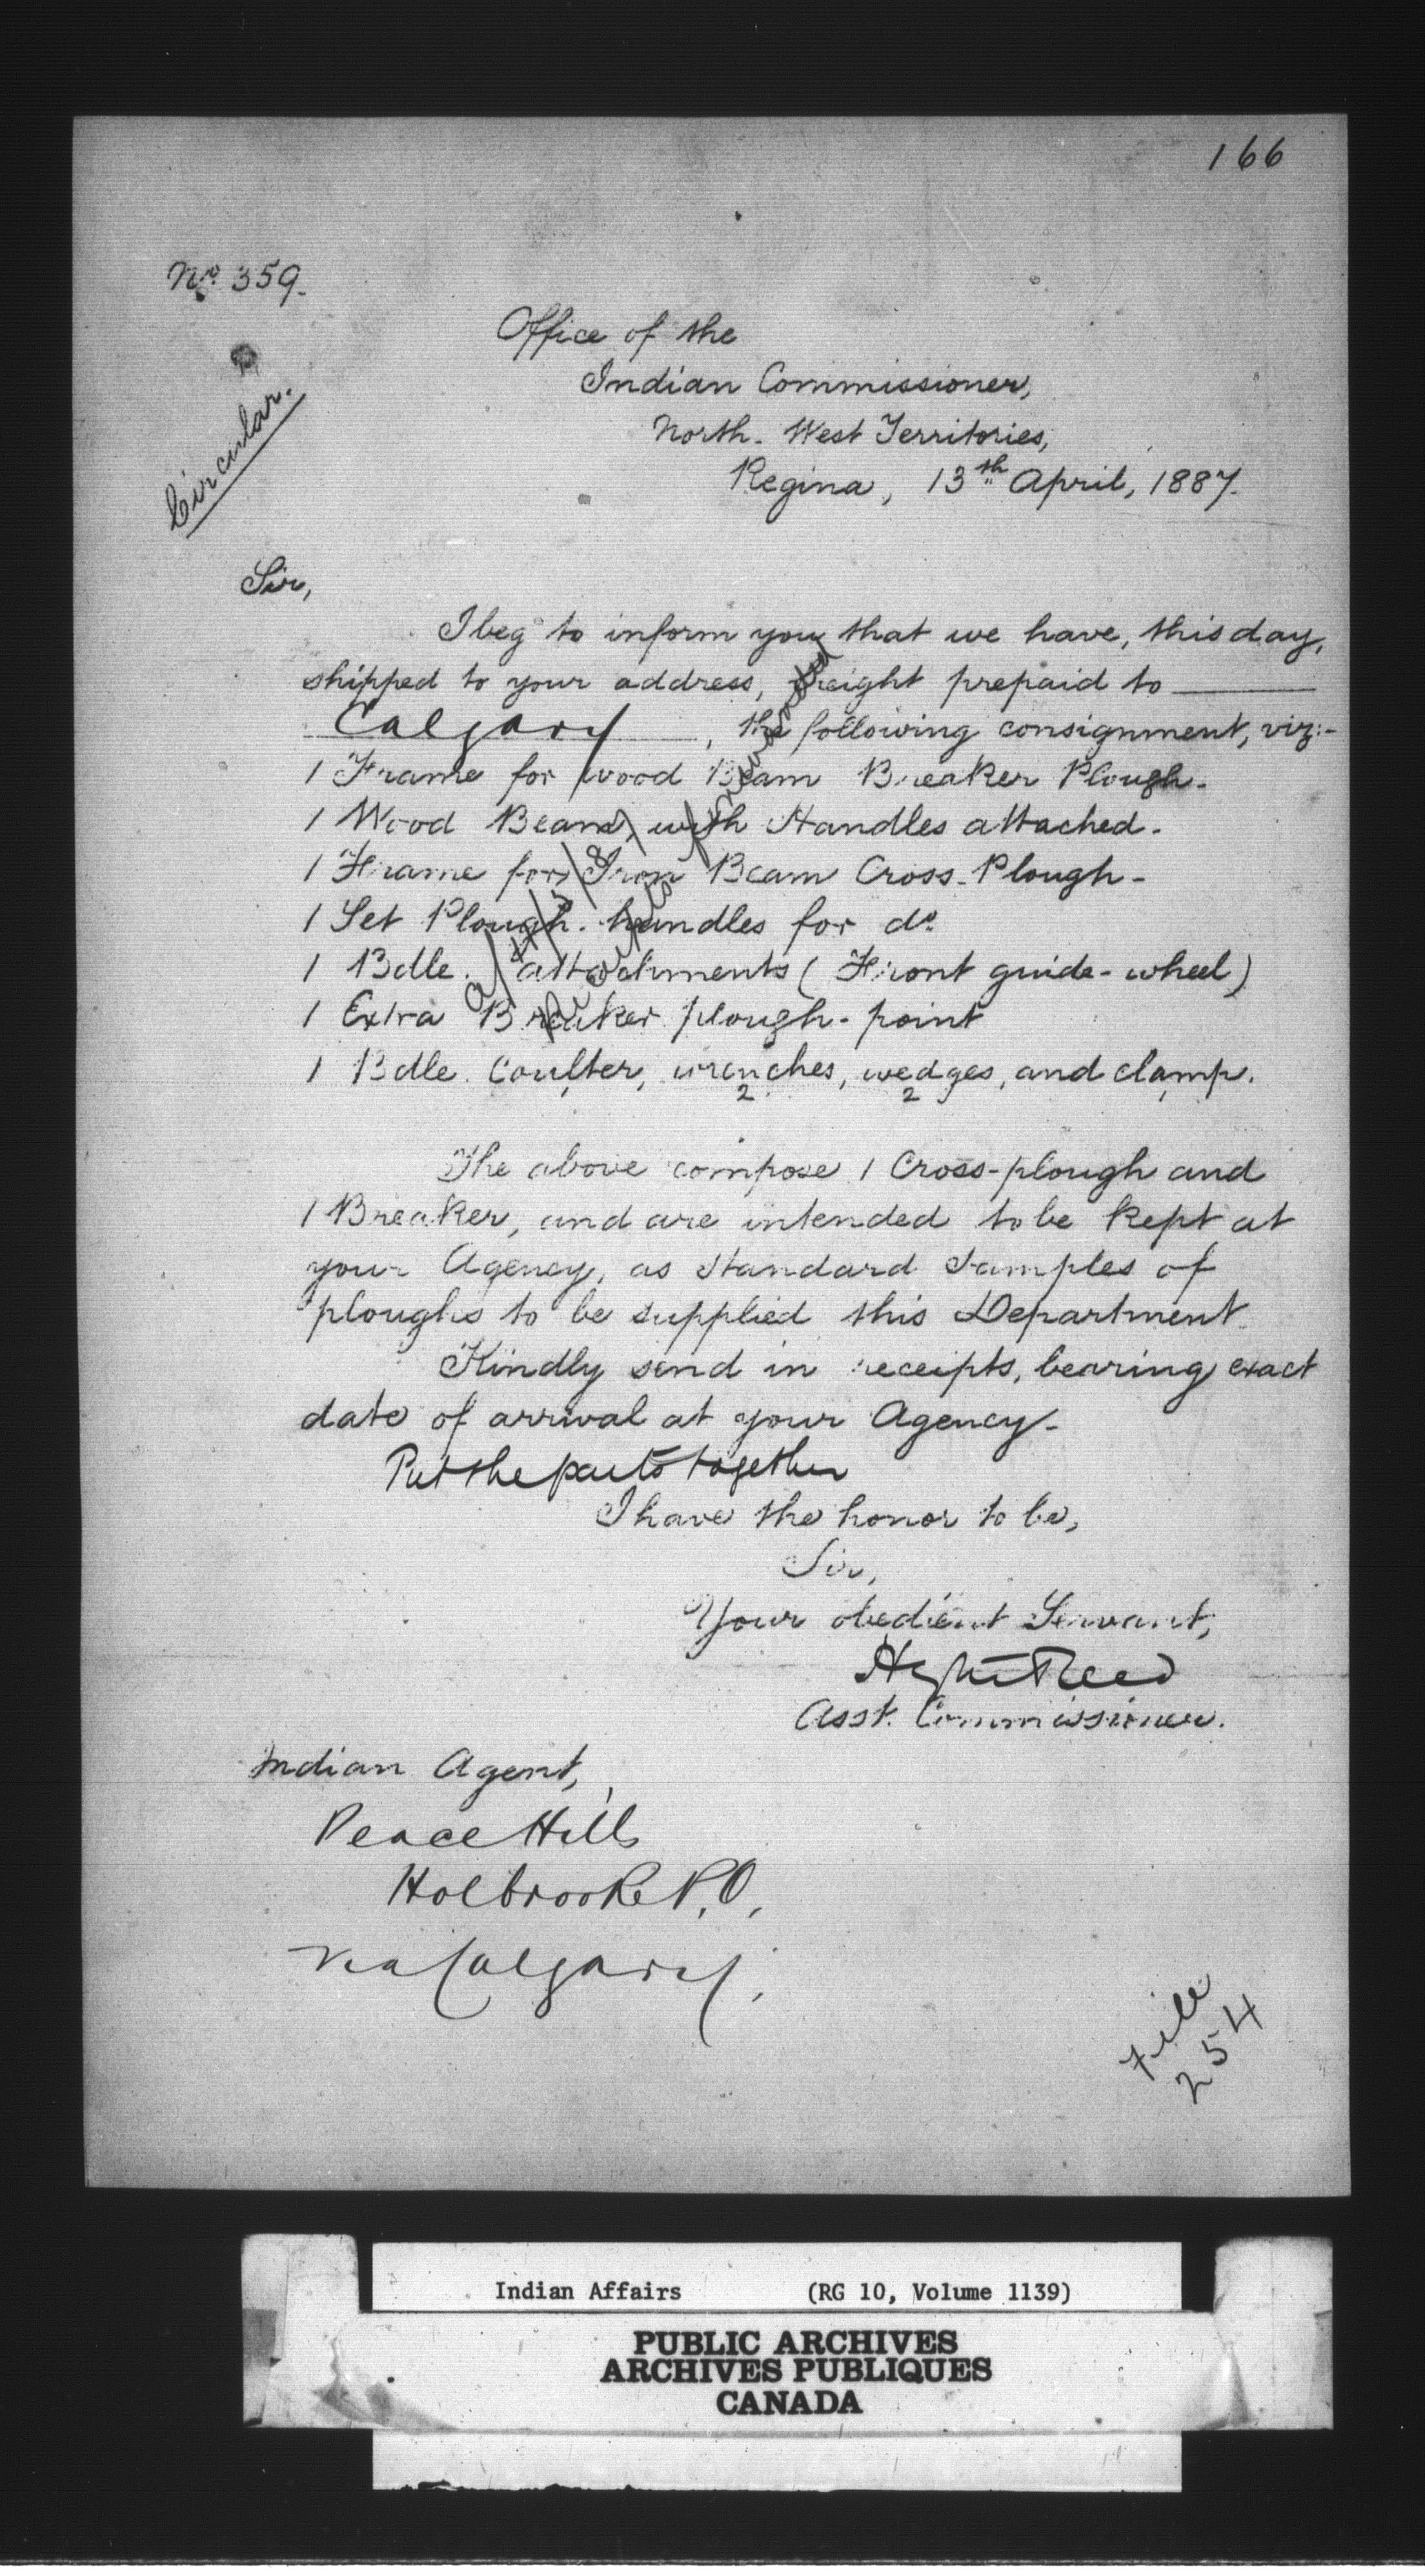 166
No. 359.
Circular.
Office of the
Indian Commissioner,
North-West Territories,
Regina, 13th April, 1887.
Sir,
I beg to inform you that we have, this day,
shipped to your address, freight prepaid to
Calgary, the following consignment, viz:-
1 Frame for wood Beam Breaker Plough-
1 Wood Beam, with Handles attached-
1 Frame for Iron Beam Cross-Plough-
1 Set Plough-handles for do.
1 Bdle. attachments (Front guide-wheel)
1 Extra Breaker plough-point
1 Bdle. Coulter, wrenches, wedges, and clamp.
2 2
The above compose 1 Cross-plough and
1 Breaker, and are intended to be kept at
your Agency, as standard samples of
ploughs to be supplied this Department.
Kindly send in receipts, bearing exact
date of arrival at your Agency-
Put the parts together
I have the honor to be,
Sir,
Your obedient Servant,
Hayter Reed
Asst. Commissioner.
Indian Agent,
Peace Hills
Holbrooke P.O,
via Calgary.
File
254
Indian Affairs (RG 10, Volume 1139)
PUBLIC ARCHIVES
ARCHIVES PUBLIQUES
CANADA